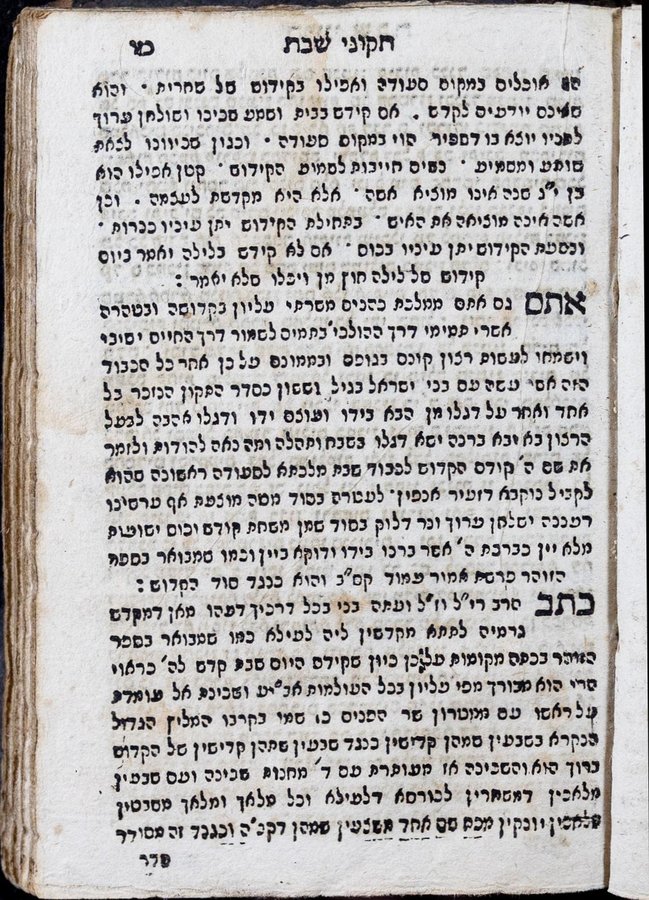 תקוני שבת מי
הם אוכלים במקום סעודה ואפילו בקידוש של שחרית · והוא
שאינם יודעים לקדש . אם קידש בבית ושמע שכינו ושולחן ערוך
לפניו יוצא בו דספיר הוי במקום סעודה · וכגון שכיוונו לצאת
שומע ומשמיע · נשים חייבות לשמוע הקידוש · קטן אפילו הוא
בן י"ג שנה אינו מוציא אשה · אלא היא מקדשת לעצמה . וכן
אשה אינה מוציאה את האיש · בתחילת הקידוש יתן עיניו בנרות ·
ובשעת הקידוש יתן עיניו בכוס · אם לא קידש בלילה יאמר ביום
קידוש של לילה חוץ מן ויכלו שלא יאמר :
אתם גם אתם ממלכת כהנים משרתי עליון בקדושה ובטהרה
אשרי תמימי דרך ההולכי' בתמים לשמור דרך החיים ישיבי
וישמחו לעשות רצון קונם בגופם ובממונם על כן אחר כל הכבוד
הזה אשר עשה עם בני ישראל בגיל וששון כסדר התקון הנזכר כל
אחד ואחד על דגלו מן הבא בידו ועוצם ידו ודגלו אהבה לבעל
הרצון בא יבא ברנה ישא דגלו בשבח ותהלה ומה נאה להודות ולזמר
את שם ה' קודם הקדוש לכבוד שבת מלכתא לסעודה ראשונה שהוא
לקביל נוקבא דזעיר אנפין · לעטרה בסוד מטה מוצעת אף ערשינו
רעננה ושלחן ערוך ונר דלוק בסוד שמן משחת קודש וכוס ישועות
מלא יין כברכת ה' אשר ברכו בידו ודוקא ביין וכמו שמבואר בספר
הזוהר פרשת אמור עמוד קס"ב והוא כנגד סוד הקדוש :
כתב הרב רי"ל וז"ל ועתה בני בכל דרכיך דעהו מאן דמקדש
גרמיה לתתא מקדשין ליה לעילא כמו שמבואר בספר
הזוהר בכמה מקומות על כן כיון שקידם היום שבת קדש לה' כראוי
הרי הוא מבורך מפי עליון בכל העולמות אבי"ע ושכינת אל עומדת
על ראשו עם מטטרון שר הפנים כי שמי בקרבו המליץ הגדול
הנקרא בשבעין שמהן קדישין כנגד שבעין שמהן קדישין של הקדוש
ברוך הוא והשכינה אז מעוטרת עם ד' מחנות שכינה ועם שבעין
מלאכין דמשתחין לכורסא דלעילא וכל מלאך ומלאך משבעין
מלאכין יונקין מכח שם אחד משבעין שמהן דקב"ה וכנגד זה מסודר
סדר